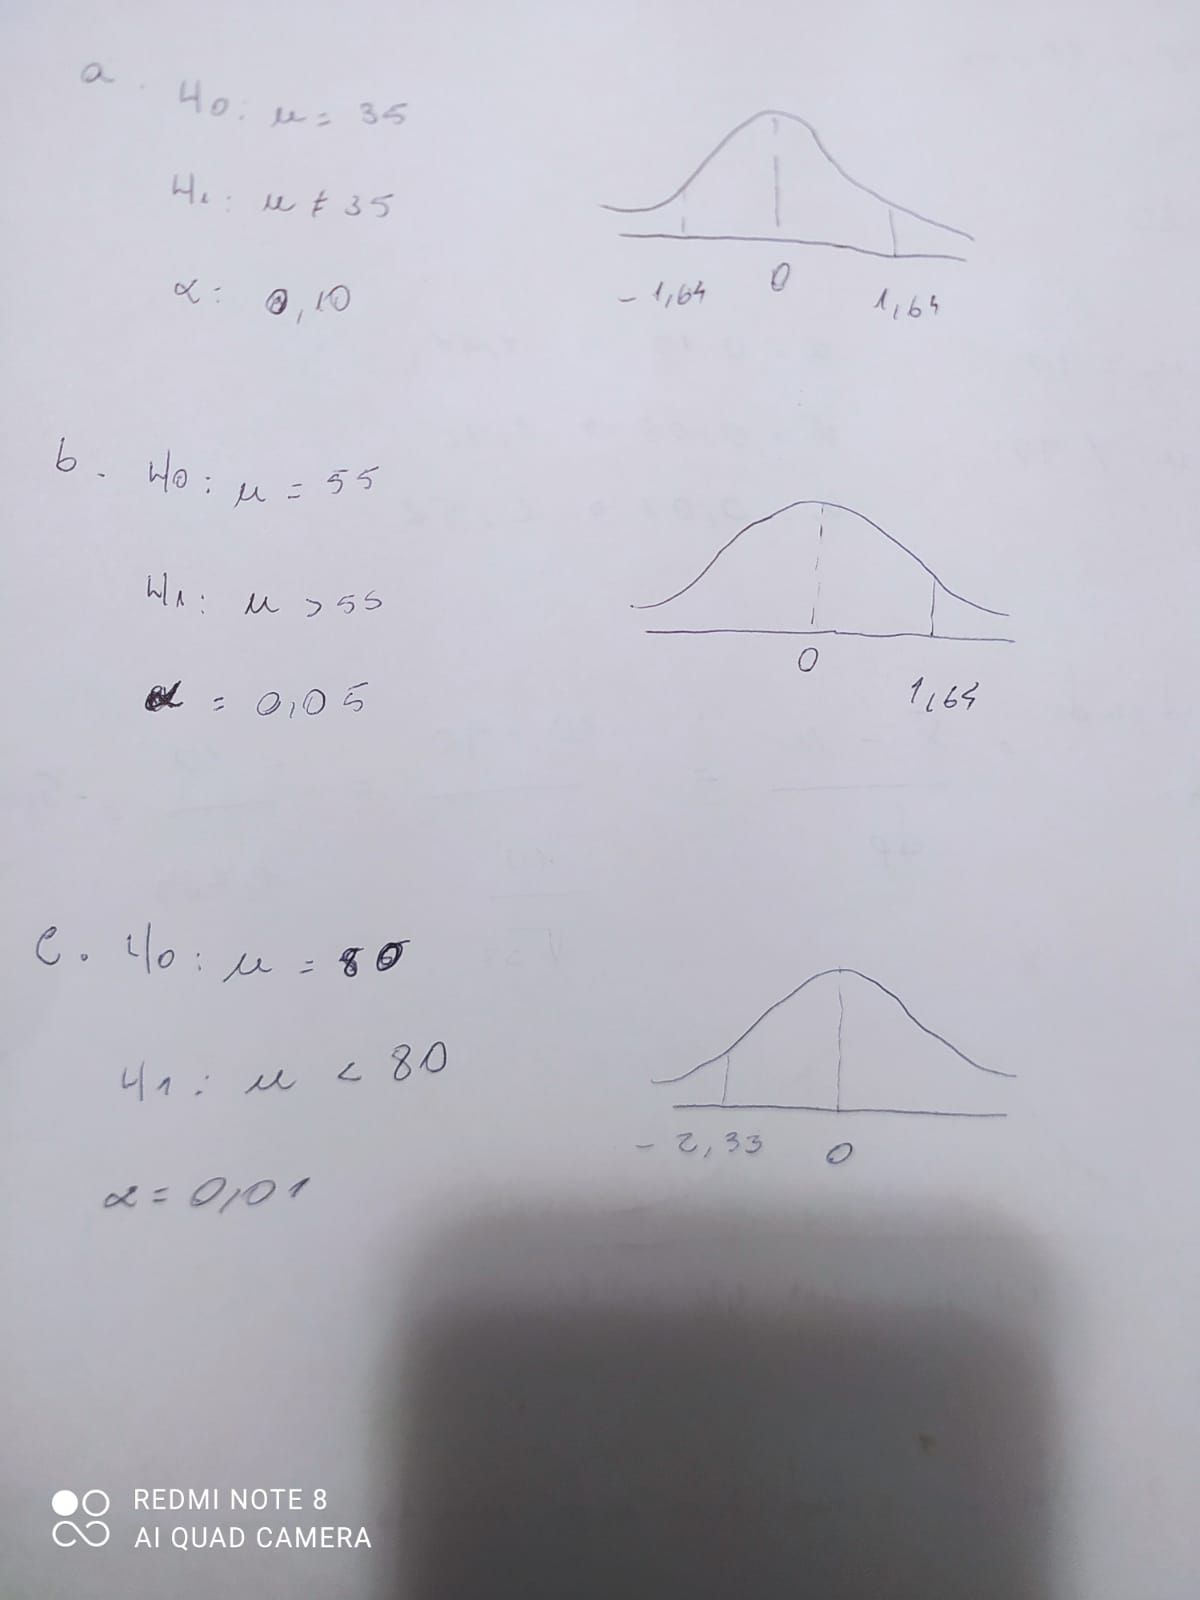 a. H0: μ = 35
H1: μ ≠ 35
α: 0,10
-1,64 0 1,64
b. H0: μ = 55
H1: μ > 55
α = 0,05
0 1,64
c. H0: μ = 80
H1: μ < 80
α = 0,01
-2,33 0
REDMI NOTE 8
AI QUAD CAMERA